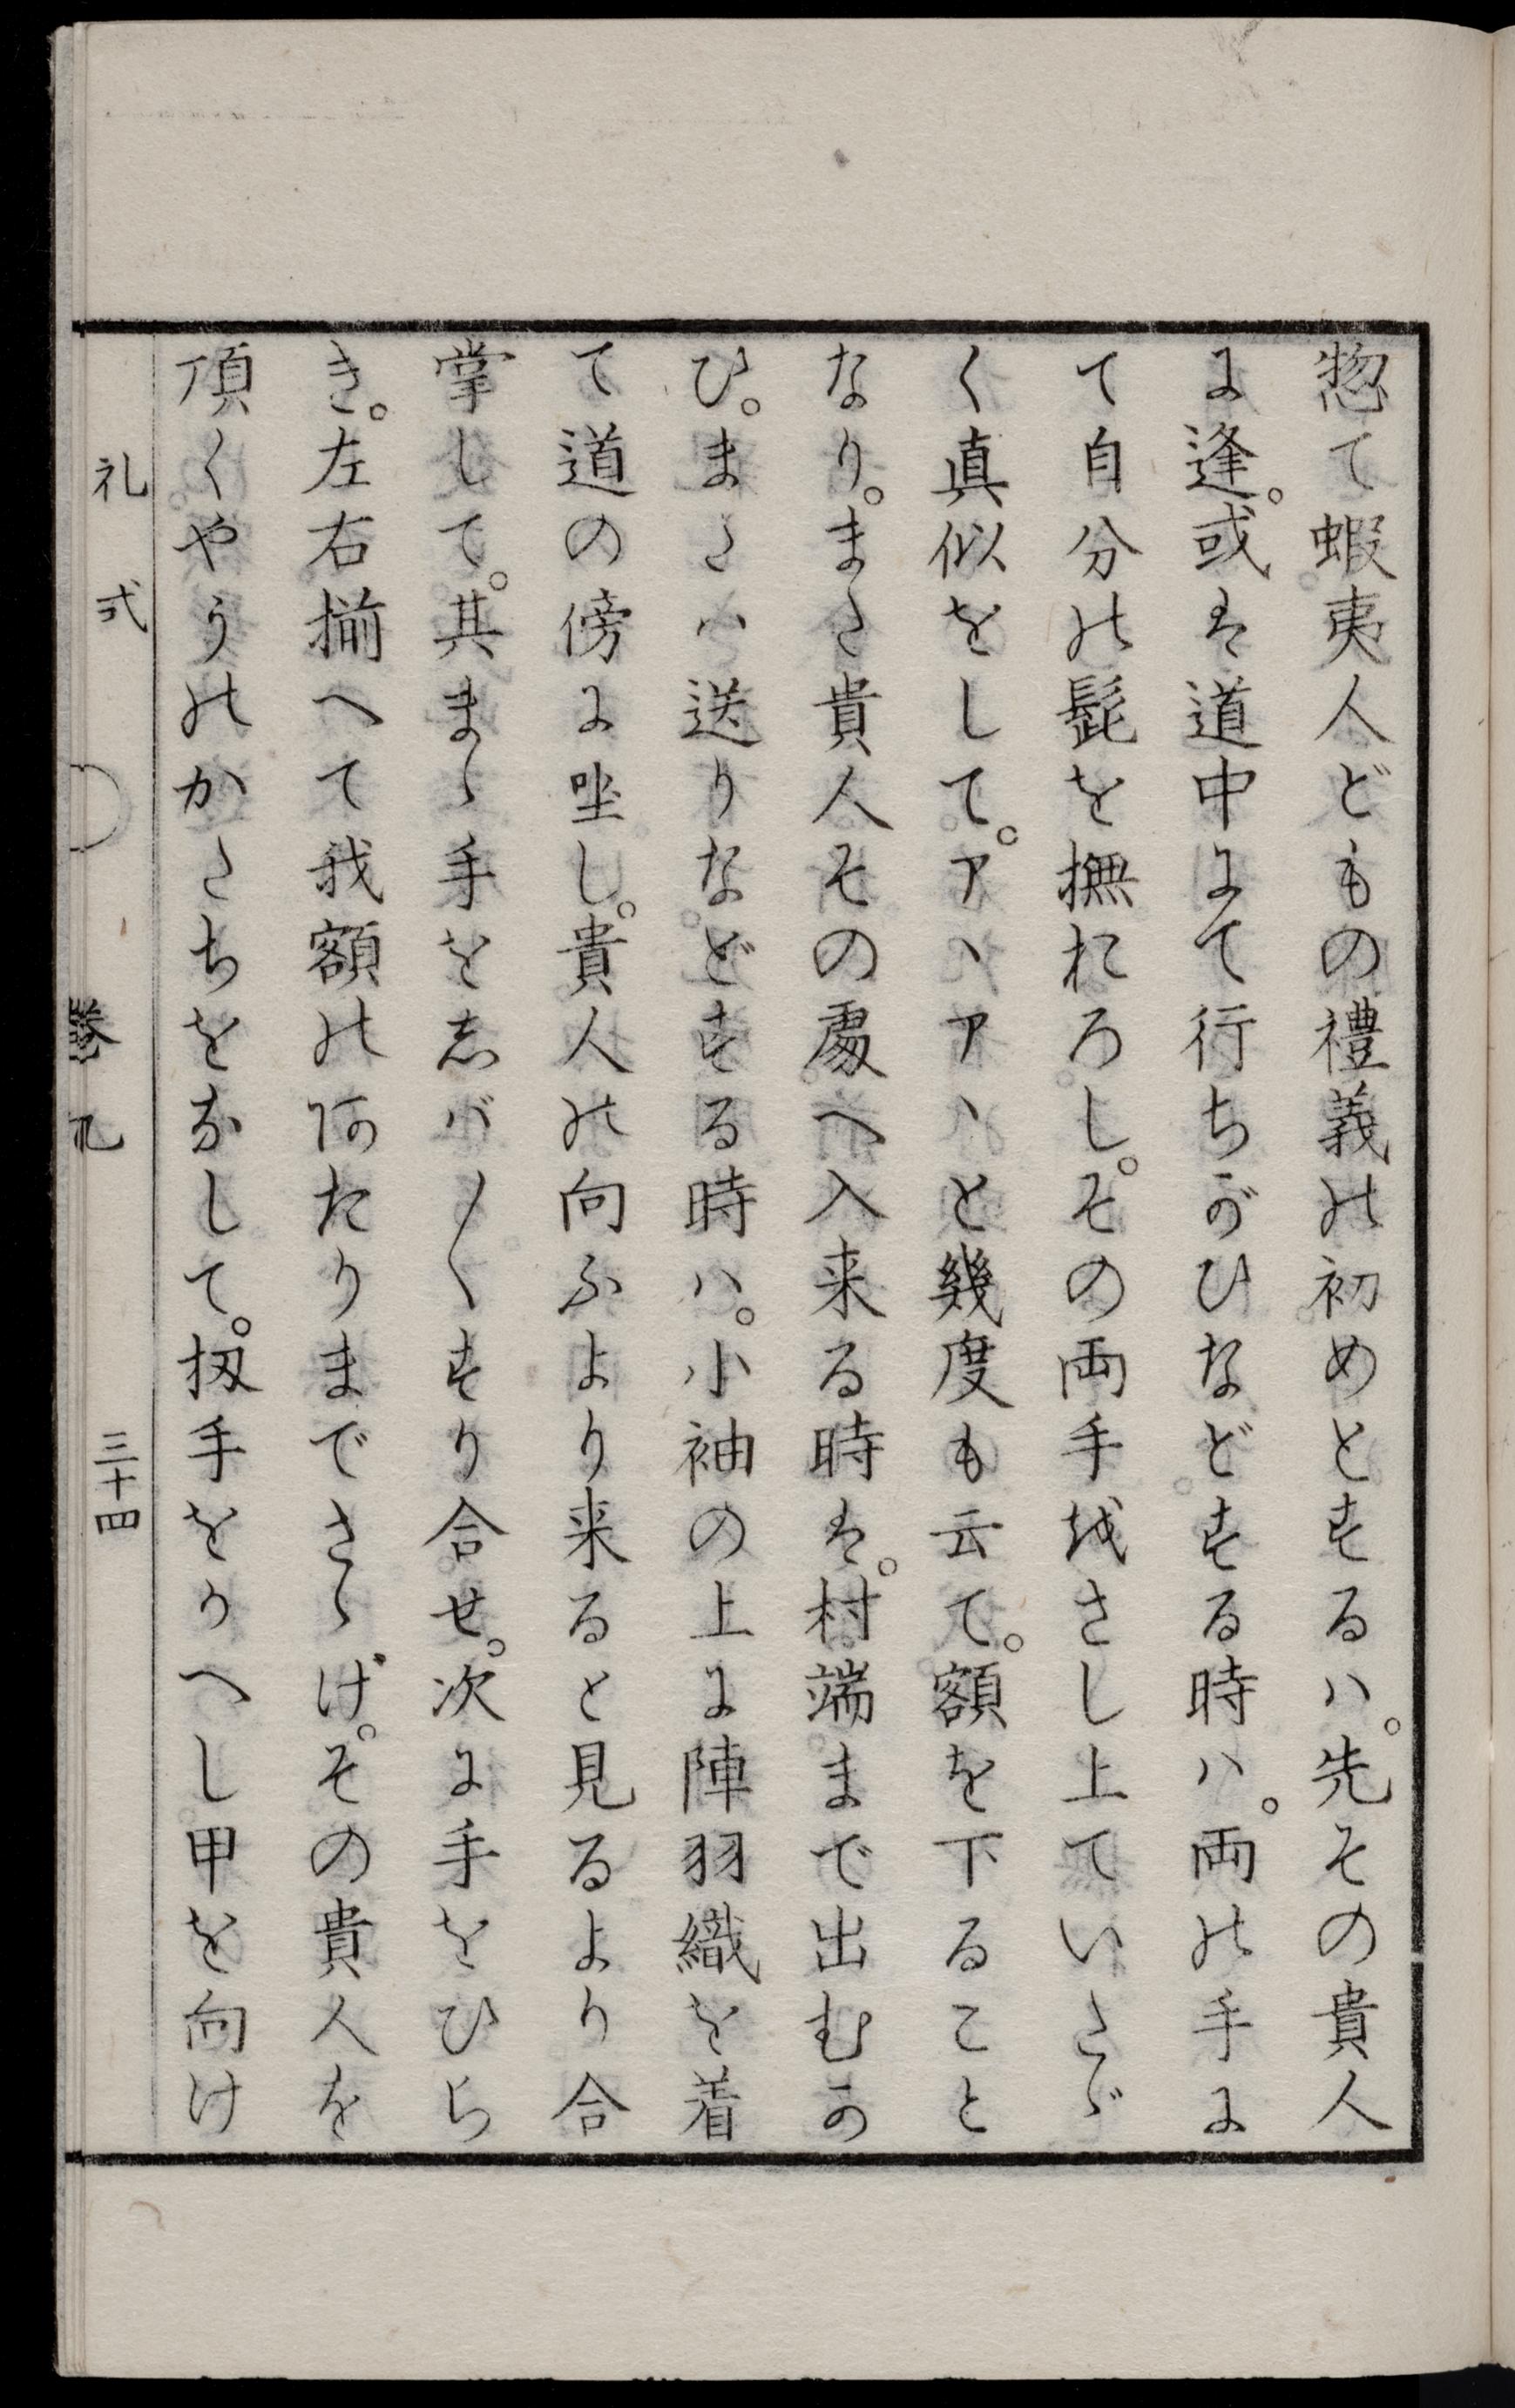 惣て蝦夷人どもの禮義の初めとするハ。先その貴人
に逢。或は道中にて行ちがひなどする時ハ。両の手に
て自分の髭を撫おろし。その両手をさし上ていたゞ
く真似をして。アヽアヽと幾度も云て。額を下ること
なり。また貴人その處へ入来る時は。村端まで出むか
ひ。またハ送りなどする時ハ。小袖の上に陣羽織を着
て道の傍に坐し。貴人の向ふより来ると見るより合
掌して。其まゝ手をしバ〱すり合せ。次に手をひら
き。左右揃へて我額のあたりまでさゝげ。その貴人を
頂くやうのかたちをなして。扨手をかへし甲を向け
礼式
三十四